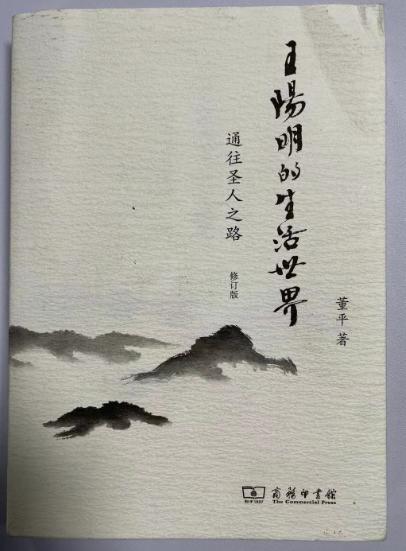 王陽明的生活世界
通往圣人之路
修订版
董平 著
商務印書館
The Commercial Press